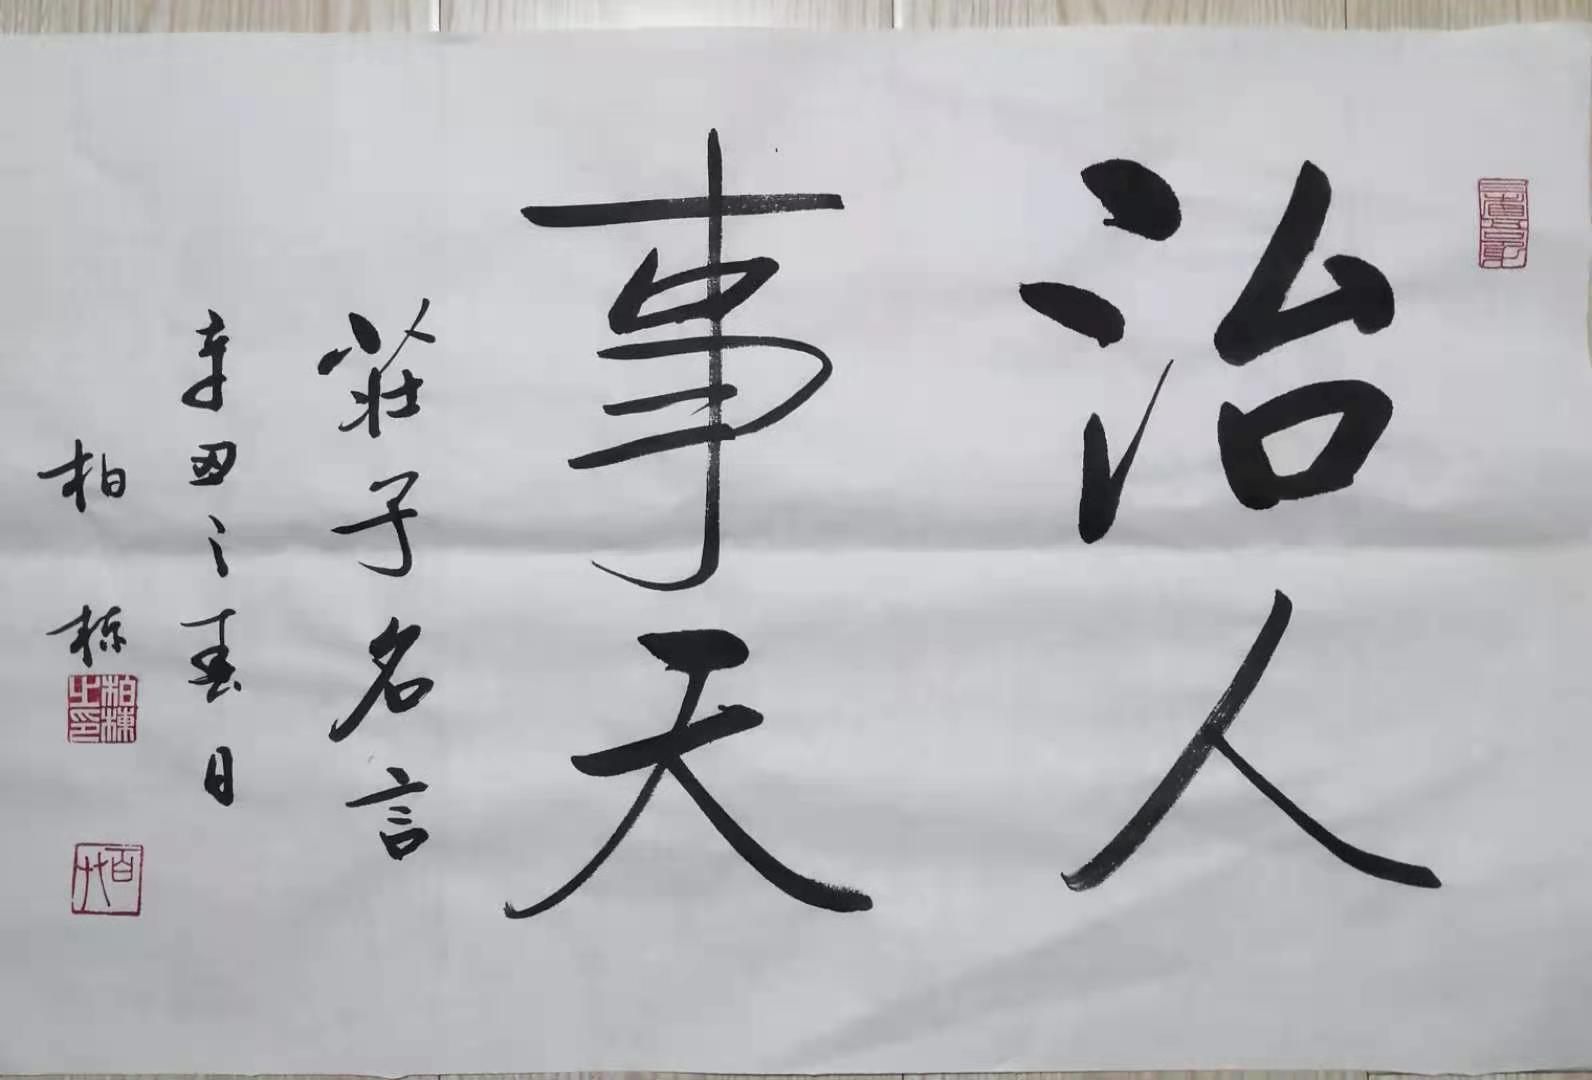 治人
事天
莊子名言
辛丑之春日
柏栋
柏棟之印